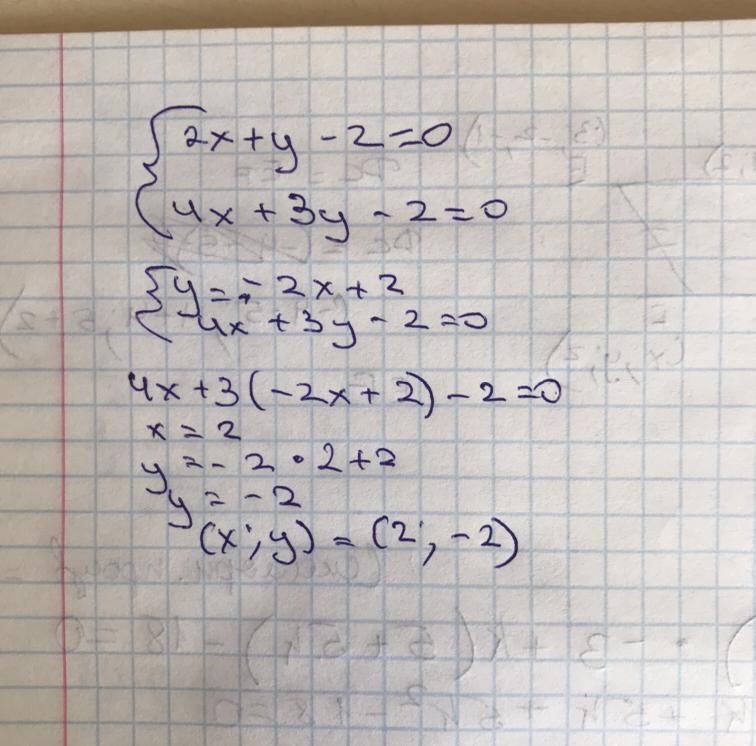 2x+y-2=0
4x+3y-2=0
y=-2x+2
4x+3y-2=0
4x+3(-2x+2)-2=0
x=2
y=-2•2+2
y=-2
(x;y)=(2;-2)